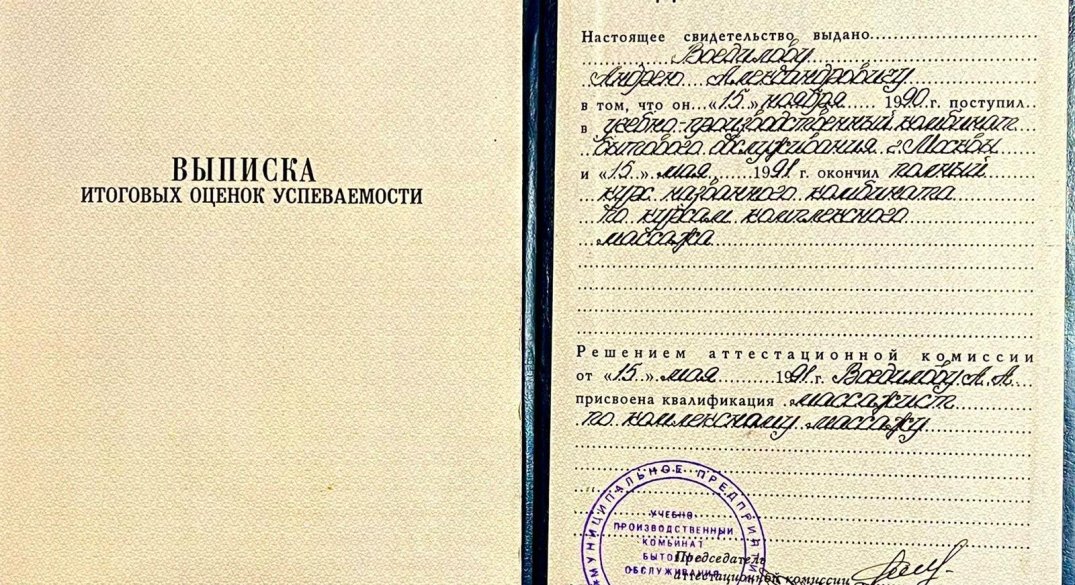 ВЫПИСКА
ИТОГОВЫХ ОЦЕНОК УСПЕВАЕМОСТИ
Настоящее свидетельство выдано
Воедилову
Андрею Александровичу
в том, что он «15» ноября 1990 г. поступил
в учебно-производственный комбинат
бытового обслуживания г. Москвы
и «15» мая 1991 г. окончил полный
курс названного комбината
по курсам комплексного
массажа
Решением аттестационной комиссии
от «15» мая 1991 г. Воедилову А. А.
присвоена квалификация массажист
по комленсному массажу
МУНИЦИПАЛЬНОЕ ПРЕДПРИЯТИ
УЧЕБНО
ПРОИЗВОДСТВЕННЫЙ
КОМБИНАТ
ОБСЛУЖИВАНИЯ
Председатель
аттестационной комиссии